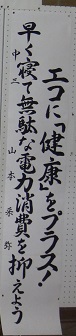 エコに「健康」をプラス!
早く寝て無駄な電力消費を抑えよう
中三 山本采弥